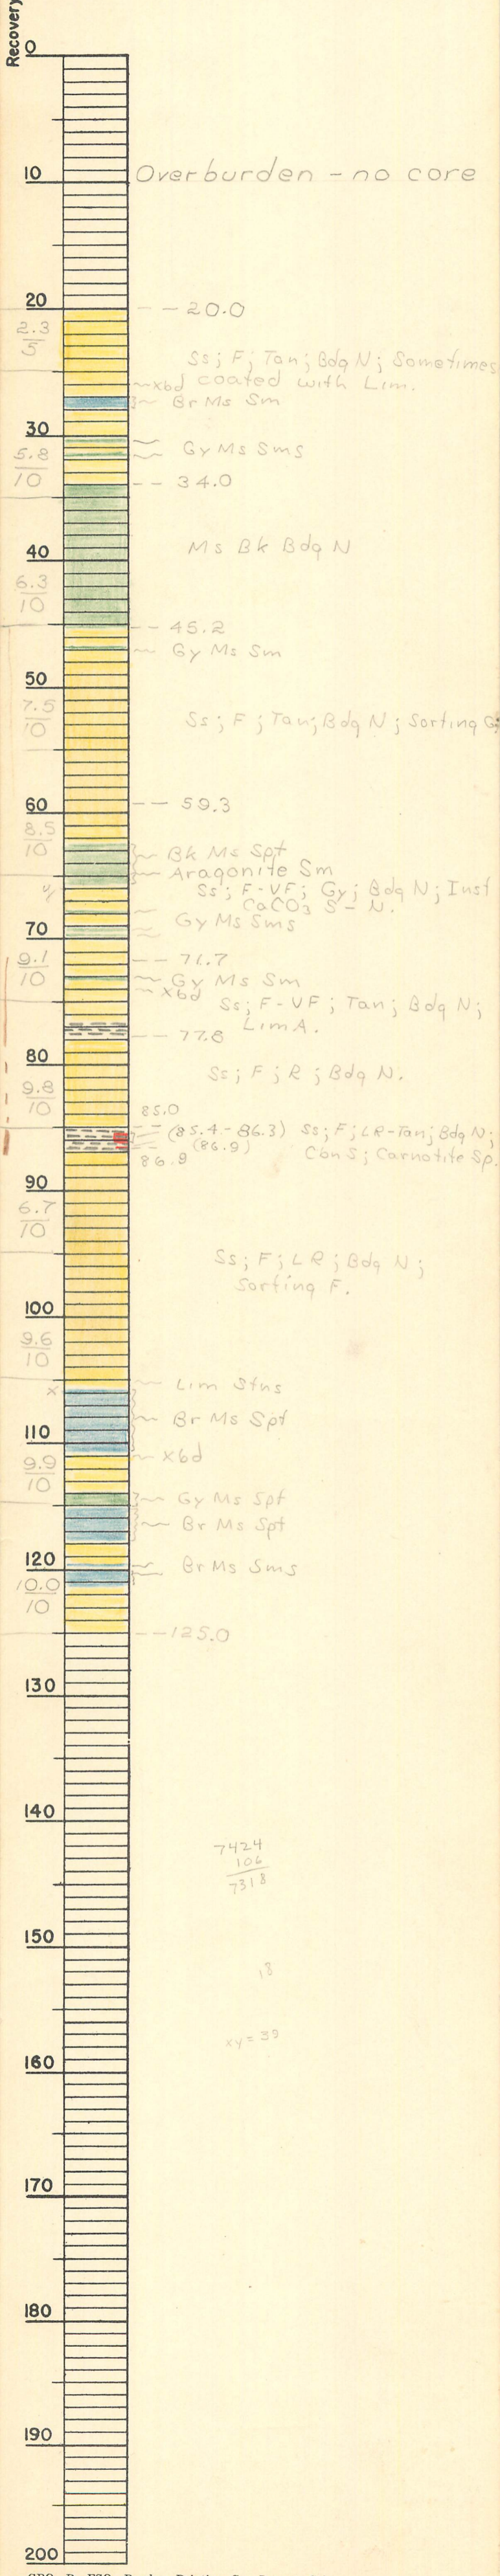 Recovery
0
10 Overburden - no core
20 -- 20.0
2.3
5
Ss; F; Tan; Bdg N; Sometimes
xbd coated with Lim.
Br Ms Sm
30
Gy Ms Sms
5.8
10
-- 34.0
40 Ms Bk Bdg N
6.3
10
-- 45.2
Gy Ms Sm
50
7.5
10
Ss; F; Tan; Bdg N; Sorting G;
60 -- 59.3
8.5
10
Bk Ms Spt
Aragonite Sm
Ss; F-VF; Gy; Bdg N; Inst
CaCO3 S-N.
Gy Ms Sms
70
-- 71.7
9.1
10
Gy Ms Sm
xbd Ss; F-VF; Tan; Bdg N;
Lim A.
-- 77.8
80 Ss; F; R; Bdg N.
9.8
10
85.0
(85.4-86.3) Ss; F; LR-Tan; Bdg N;
(86.9) Cbn S; Carnotite Sp.
86.9
90
6.7
10
Ss; F; LR; Bdg N;
Sorting F.
100
9.6
10
Lim Stns
x
Br Ms Spt
110
xbd
9.9
10
Gy Ms Spt
Br Ms Spt
120 Br Ms Sms
10.0
10
--125.0
130
140
7424
106
7318
150
18
xy = 39
160
170
180
190
200